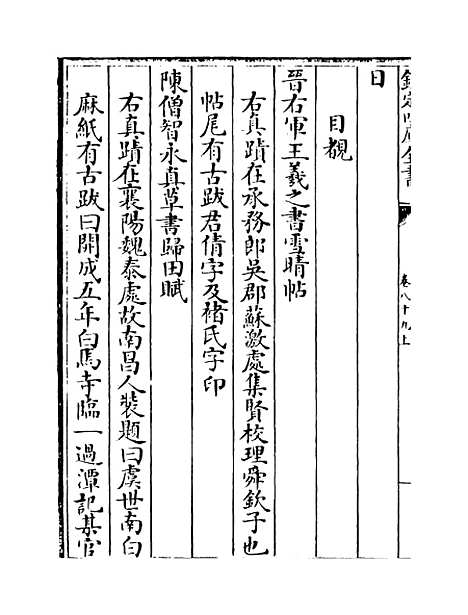 欽定四庫全書
卷八十九上
目
目覩
晉右軍王羲之書雪晴帖
右真蹟在承務郎吳郡蘇激處集賢校理舜欽子也
帖尾有古跋君倩字及褚氏字印
陳僧智永真草書歸田賦
右真蹟在襄陽魏泰處故南昌人裝題曰虞世南白
麻紙有古跋曰開成五年白馬寺臨一過潭記某官